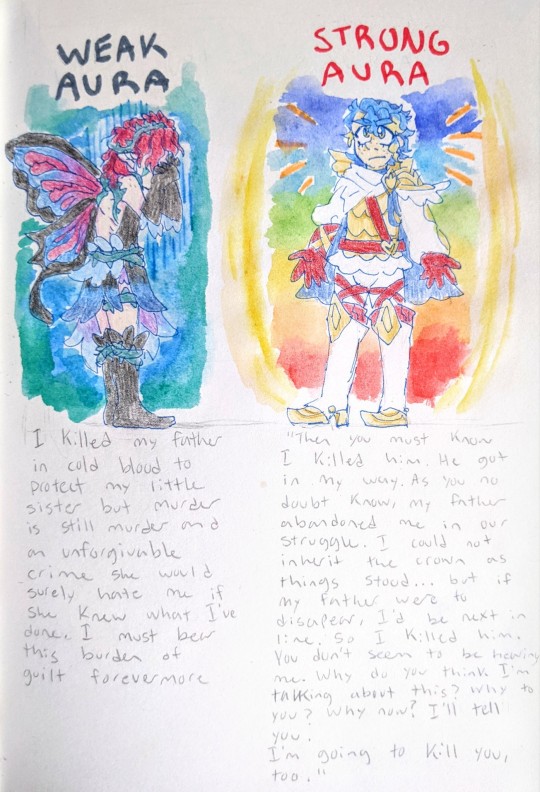 WEAK
AURA
I killed my father
in cold blood to
protect my little
sister but murder
is still murder and
an unforgivable
crime she would
surely hate me if
she knew what I've
done. I must bear
this burden of
guilt forevermore
STRONG
AURA
"Then you must know
I killed him. He got
in my way. As you no
doubt know, my father
abandoned me in our
struggle. I could not
inherit the crown as
things stood... but if
my father were to
disapear, I'd be next in
line. So I killed him.
You don't seem to be hearing
me. Why do you think I'm
talking about this? Why to
you? Why now? I'll tell
you.
I'm going to kill you,
too."